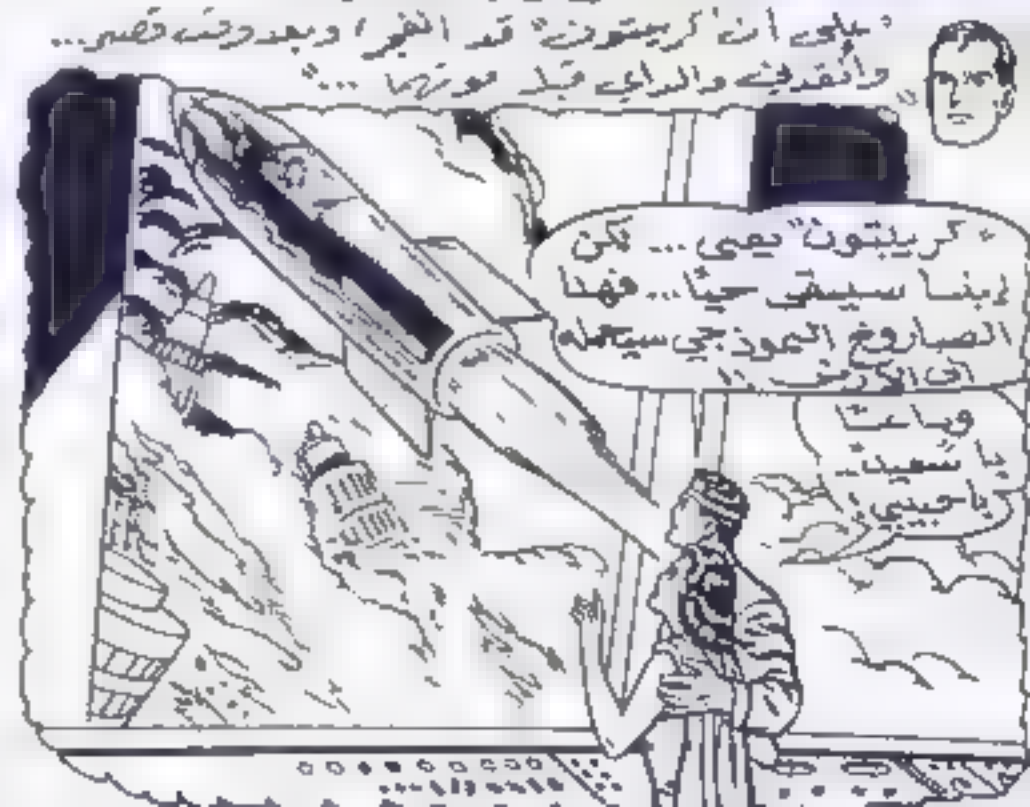 "على أن "كريبتون" قد انفجر، وبعد وقت قصير...
وأنقذني والداي قبل موتهما ..."
"كريبتون" يفنى ... لكن
إبننا سيبقى حيًّا... فهذا
الصاروخ النموذجي سيحمله
الى الأرض !!
وداعًا
يا
يا حبيبي!